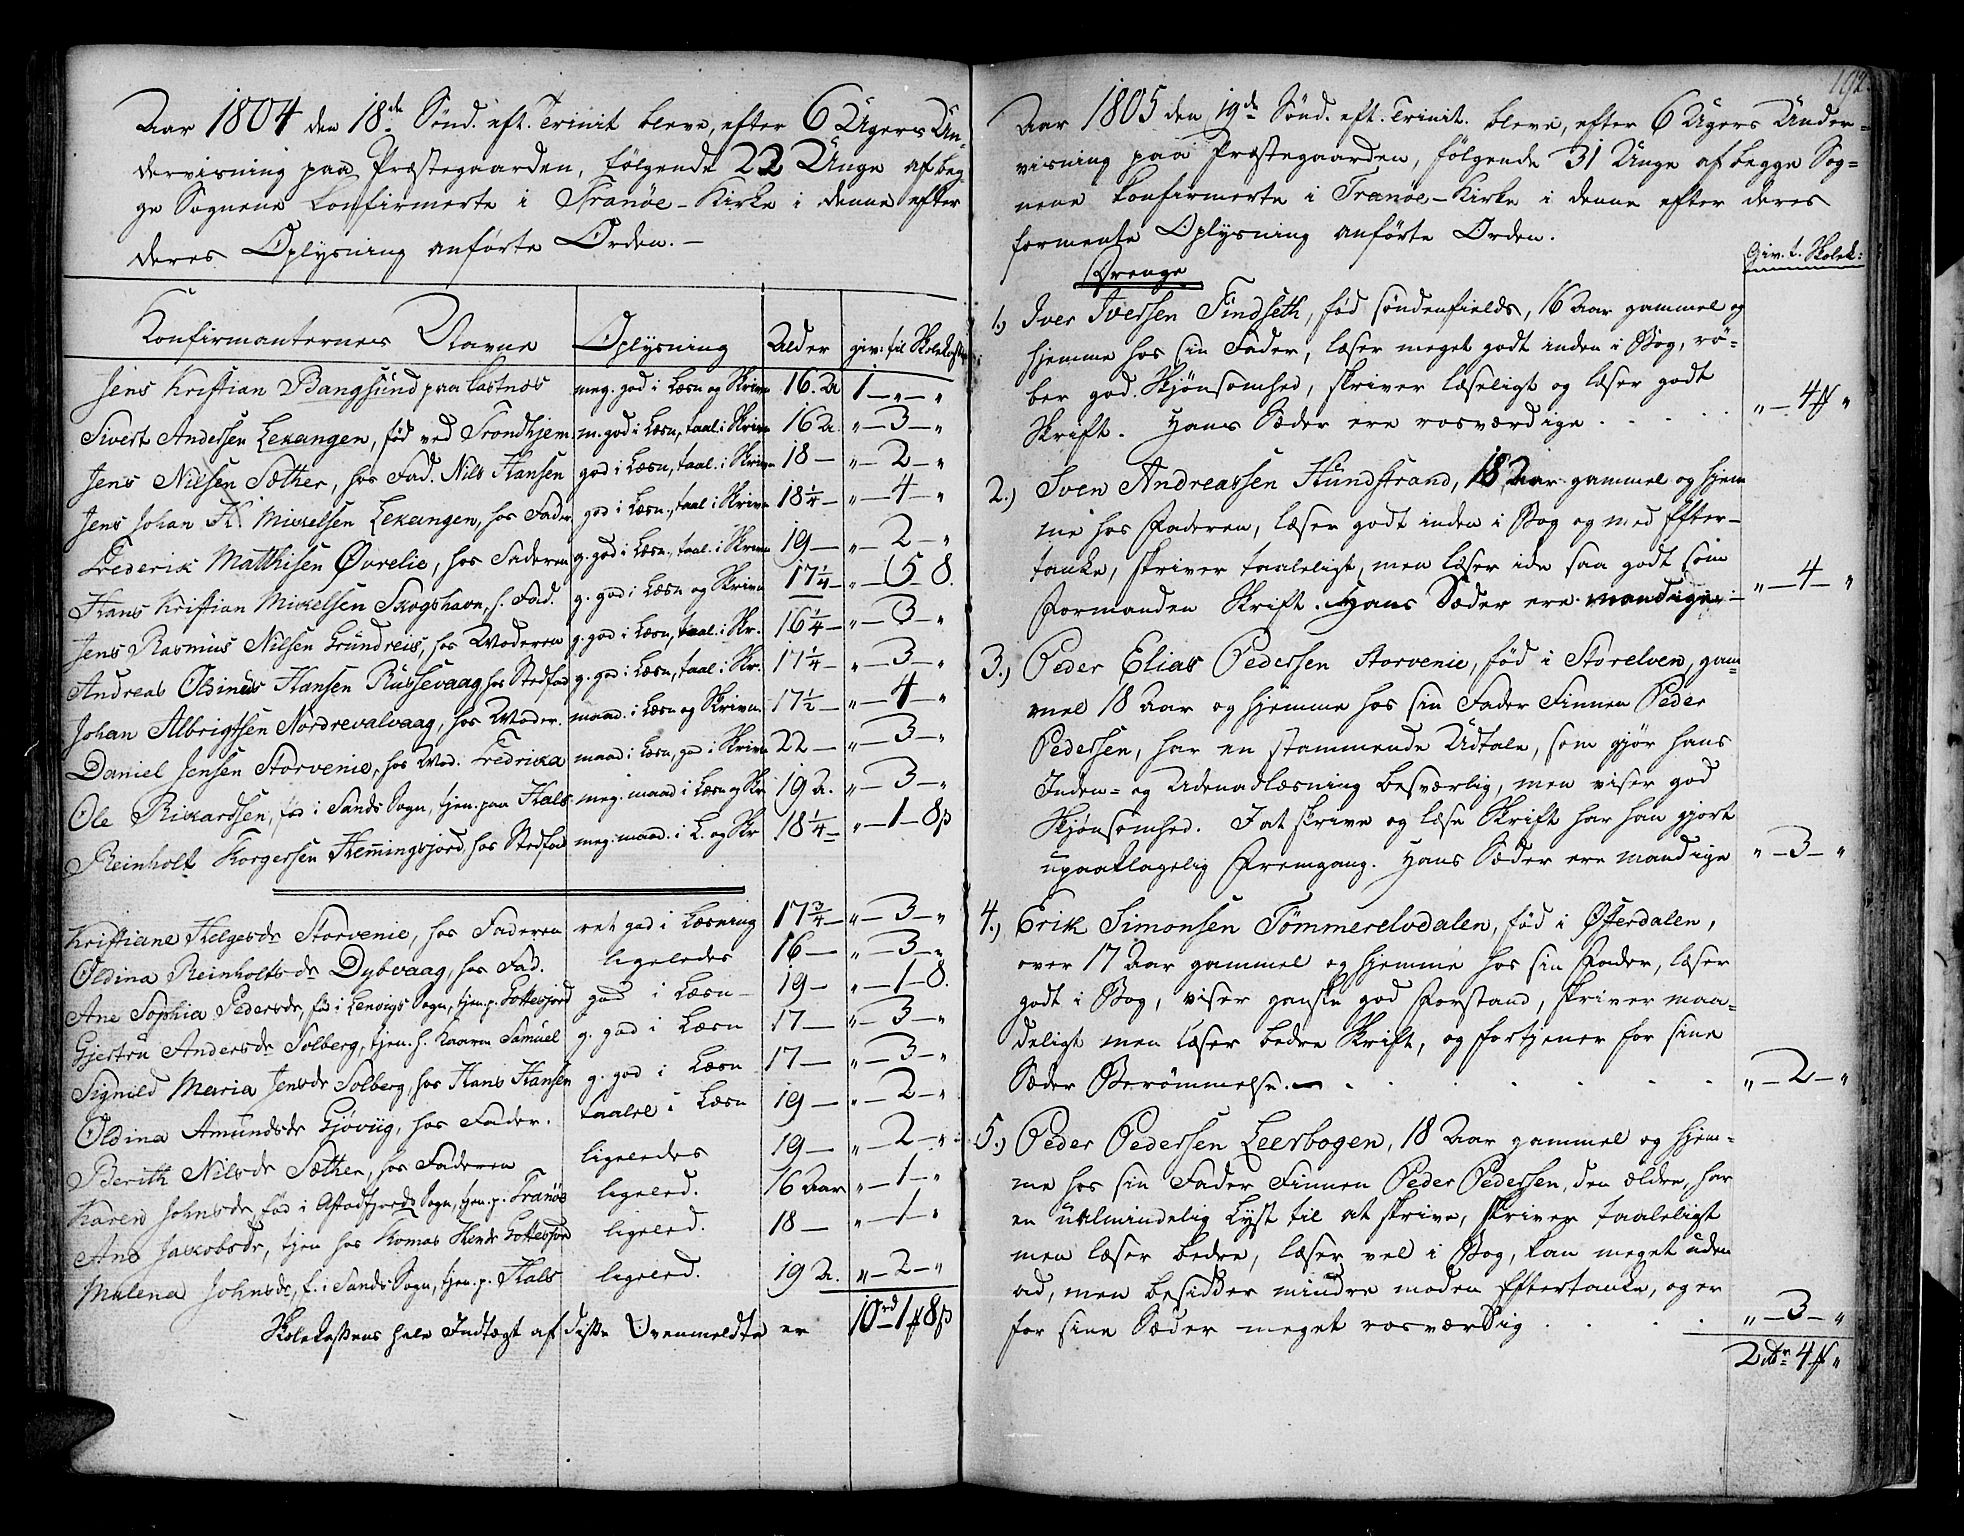 Aar 1804 den 18de Sönd. eft. Trinit bleve, efter 6 Ugers Un-
dervisning paa Præstegaarden, følgende 22 Unge af beg
ge Sognene konfirmerte i Tranöe-Kirke i denne efter
deres Oplysning anførte Orden. -
Konfirmanternes Navne Oplysning Alder giv. til Skolekassen
Jens Kristian Bangsund paa Lastnæs meg. god i Læsn og Skrivn 16. A 1 - " - "
Sivert Andersen Lekangen, fød ved Trondhjem m. god i Læsn, taal. i Skrivn 16 A. " - 3 - "
Jens Nilsen Sæther, hos Fad. Nils Hansen god i Læsn, taal. i Skrivn 18 - " - 2 - "
Jens Johan Mikkelsen Lekangen, hos Fader god i Læsn, taal. i Skrivn 18 1/4 - " - 4 - "
Frederik Matthisen Øvrelie, hos Faderen g. god i Læsn, taal. i Skrivn 19 - " - 2 - "
Hans Kristian Mikelsen Skogshavn, h. Fad. g. god i Læsn og Skrivn 17 1/4 - " - 5 - 8.
Jens Rasmus Nilsen Grundreis, hos Moderen g. god i Læsn, taal. i Skr. 16 1/4 - " - 3 - "
Andreas Oldinus Hansen Russevaag hos Stedfad g. god i Læsn, taal. i Skr. 17 1/4 - " - 3 - "
Johan Albrigtsen Nordrevalvaag, hos Moder. maad. i Læsn og Skrivn. 17 1/2 - " - 4 - "
Daniel Jensen Storvenie, hos Mod. Fredrica maad i Læsn, god i Skrivn 22 - " - 3 - "
Ole Rikardsen, fød i Sands Sogn, tjen. paa Hals meg. maad i Læsn og Skr 19 A. " - 3 - "
Reinholt Torgersen Hemingsjord, hos Stedfad meg. maad. i L. og Skr 18 1/4 - " - 1 - 8 ß
Kristiane Helgesdr Storvenie, hos Faderen ret god i Læsning 17 3/4 - " - 3 - "
Oldina Reinholtsdr Dybvaag, hos Fad. ligeledes 16 - " - 3 - "
Ane Sophia Pedersdr, fød i Lenvigs Sogn, tjen. p. Gottesjord god i Læsn - 19 - " - 1 - 8.
Gjertru Andersdr Solberg, tjen. h. Kaarn Samuel g. god i Læsn 17 - " - 3 - "
Signild Maria Jensdr Solberg, hos Hans Hansen g. god i Læsn 17 - " - 3 - "
Oldina Amundsdr Gjövig, hos Fader. taalel i Læsn 19 - " - 2 - "
Berith Nilsdr Sæther, hos Faderen ligeledes 19 - " - 2 - "
Karen Johnsdr, fød i Astafjords Sogn, tjen. p. Tranöe ligeled. 16 Aar " - 1 - "
Ane Jakobsdr, tjen hos Thomas Gottesjord ligeled. 18 - " - 1 - "
Malena Johnsdr, f. i Sands Sogn, tjen. p. Hals ligeled. 19 A. " - 2 - "
Skolekassens hele Indtægt af disse Ovenmeldte er 10 rd 1 # 8 ß
192.
Aar 1805 den 19de Sönd. eft. Trinit. bleve, efter 6 Ugers Under-
visning paa Præstegaarden, følgende 31 Unge af begge Sog-
nene konfirmerte i Tranöe-Kirke i denne efter deres
formente Oplysning anførte Orden.
Giv. t. Skolek:
Drenge
1.) Iver Iversen Findseth, fød søndenfields, 16 Aar gammel og
hjemme hos sin Fader, læser meget godt inden i Bog, rö-
ber god Skjönsomhed, skriver læseligt og læser godt
Skrift. Hans Sæder ere rosværdige . . . . " - 4 # "
2.) Sven Andreassen Hundstrand, 18 Aar gammel og hjem
me hos Faderen, læser godt inden i Bog og med Efter-
tanke, skriver taaleligt, men læser ikke saa godt som
Formanden Skrift. Hans Sæder ere mandige - " - 4 - "
3.) Peder Elias Pedersen Storvenie, fød i Storelven, gam
mel 18 Aar og hjemme hos sin Fader Finnen Peder
Pedersen, har en stammende Udtale, som gjør hans
Inden- og Udenadlæsning besværlig, men viser god
Skjönsomhed. I at skrive og læse Skrift har han gjort
upaaklagelig Fremgang. Hans Sæder ere mandige " - 3 - "
4.) Erik Simonsen Tömmerelvdalen, fød i Østerdalen,
over 17 Aar gammel og hjemme hos sin Fader, læser
godt i Bog, viser ganske god Forstand, skriver maa-
deligt men læser bedre Skrift, og fortjener for sine
Sæder Berømmelse. - . . . . . " - 2 - "
5.) Peder Pedersen Leerbogen, 18 Aar gammel og hjem-
me hos sin Fader Finnen Peder Pedersen, den ældre, har
en ualmindelig Lyst til at skrive, skriver taaleligt
men læser bedre, læser vel i Bog, kan meget uden
ad, men besidder mindre moden Eftertanke, og er
for sine Sæder meget rosværdig . . . . " - 3 - "
2 rdr 4 # "